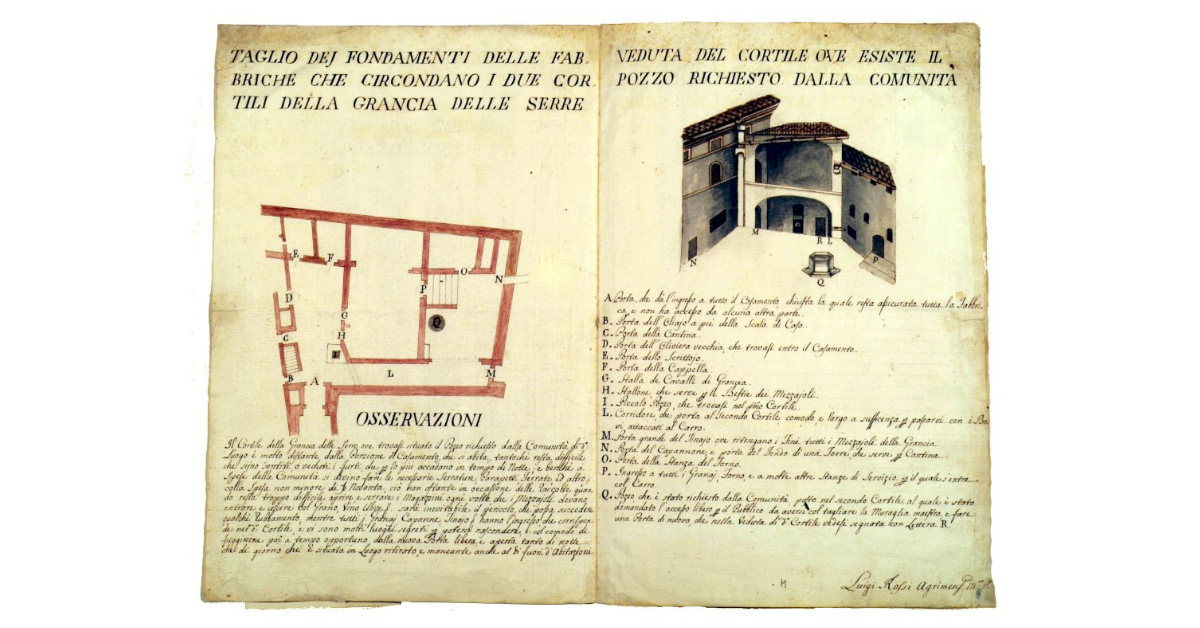 TAGLIO DEJ FONDAMENTI DELLE FAB-
BRICHE CHE CIRCONDANO I DUE COR
TILI DELLA GRANCIA DELLE SERRE
E
F
D
G
C
H
I
B
A
L
M
N
O
P
Q
OSSERVAZIONI
Il Cortile della Grancia delle Serre ove trovasi situato il Pozzo richiesto dalla Comunità di dº
Luogo è molto distante dalla Porzione di Casamento che si abita, tantochè resta difficile
che sijno sentiti, o veduti i furti, che lo più accadano in tempo di Notte; e benchè a
Spese della Comunità si devino fare le necessarie Serrature, Parapetti, Ferrate ed altro,
colla Spesa non minore di Settanta, ciò non ostante in occasione delle Raccolte quan
do resta troppo difficile aprire e serrare i Magazzini ogni volta che i Mezzajoli devano
entrare e uscire col Grano Vino Ulive sarà inevitabile il pericolo, che possa succedere
qualche Rubbamento, mentre tutti i Granaj Capanne, Tinajo hanno l'ingresso che corrispon
de nei Cortili, e vi sono molti luoghi segreti potersi nascondere, ed comodo di
fuggirsene poi a tempo opportuno dalla nuova Porta libera, e aperta tanto di notte
che di giorno che è situata in Luogo ritirato, e mancante anche al di fuori d'Abitazioni
VEDUTA DEL CORTILE OVE ESISTE IL
POZZO RICHIESTO DALLA COMUNITÀ
M
R L
N
P
Q
A. Porta, che dà l'ingresso a tutto il Casamento chiusta la quale resta assicurata tutta la Fabbri-
ca, e non ha accesso da alcuna altra parte.
B. Porta dell'Oliajo a piè della Scala di Casa.
C. Porta della Cantina.
D. Porta dell'Oliviera vecchia, che trovasi entro il Casamento.
E. Porta dello Scrittojo.
F. Porta della Cappella.
G. Stalla de Cavalli di Grancia.
H. Stallone che serve le Bestie dei Mezzajoli.
I. Piccolo Pozzo, che trovasi nel pmo Cortile.
L. Corridore che porta al Secondo Cortile comodo, e largo a sufficenza passarci con i Bo-
vi attaccati al Carro.
M. Porta grande del Tinajo ove ritengano i Tini tutti i Mezzajoli della Grancia.
N. Porta del Capannone, e porta del fondo di una Torre, che serve Cantina.
O. Porta della Stanza del Forno.
P. Ingresso a tutti i Granaj, Forno, e a molte altre Stanze di Servizio, il quale s'entra
col Carro.
Q. Pozzo che è stato richiesto dalla Comunità posto nel secondo Cortile, al quale è stato
domandato l'accesso libero il Pubblico da aversi col tagliare la Muraglia maestra, e fare
una Porta di nuovo che nella Veduta di dº Cortile vedesi segnata con Lettera R
Luigi Rossi Agrimens